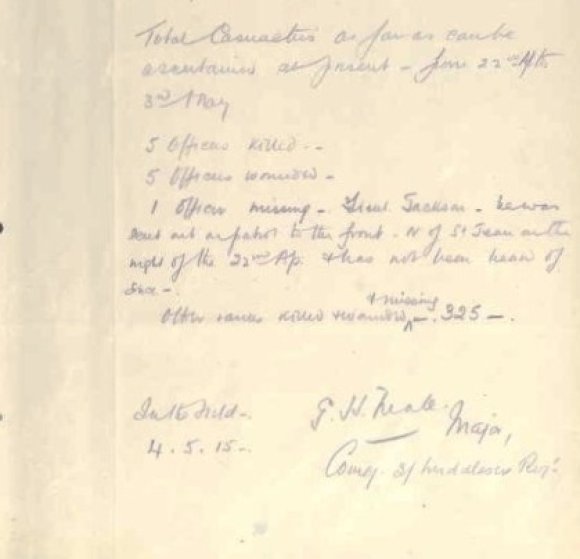 Total Casualties as far as can be
ascertained at present - from 22nd Ap to
3rd May
5 Officers killed. -
5 Officers wounded -
1 Officer missing - Lieut Jackson - he was
sent out on patrol to the front - N of St Jean on the
night of the 22nd Ap. & has not been heard of
since -
Other ranks killed & wounded & missing - 325 -.
In the Field -
4.5.15 -
G. H. Neale. Major,
Comdg. 3/ Middlesex Regt